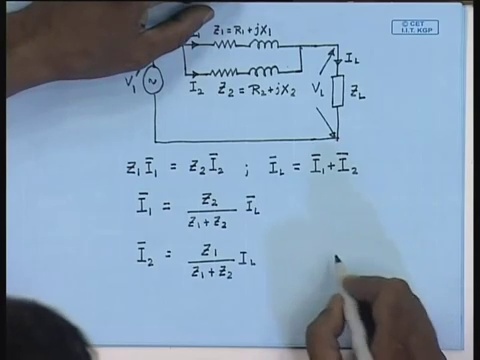 © CET
I.I.T. KGP
Z₁ = R₁ + jX₁
I_L
I₂
Z₂ = R₂ + jX₂
V₁
V_L
Z_L
Z₁Ī₁ = Z₂Ī₂ ; Ī_L = Ī₁ + Ī₂
Ī₁ = Z₂ / (Z₁ + Z₂) Ī_L
Ī₂ = Z₁ / (Z₁ + Z₂) I_L